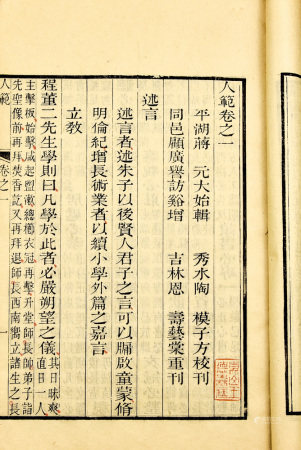 人範卷之一
平湖蔣 元大始輯 秀水陶 模子方校刊
同邑顧廣譽訪谿增 吉林恩 壽藝棠重刊
述言
述言者述朱子以後賢人君子之言可以牖啟童蒙脩
明倫紀增長術業者以續小學外篇之嘉言
立教
程董二先生學則曰凡學於此者必嚴朔望之儀
其日昧爽
直日一人
主擊板始擊咸起盥漱總櫛衣冠再擊升堂師長帥弟子詣
先聖像前再拜焚香訖又再拜退師長西南嚮立諸生之長
人範 卷之一 一